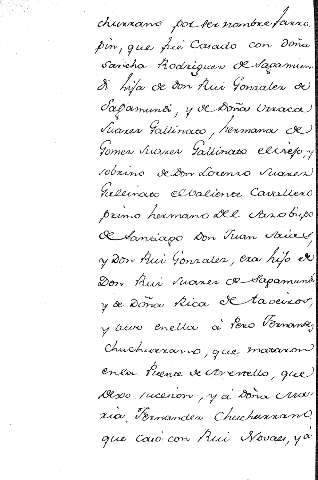 churrano por ser nombre farro
pin, que fué Casado con Doña
Sancha Rodriguez de Sagamun
di hija de Don Rui Gonzalez de
Sagamundi, y de Doña Urraca
Suarez Gallinato, hermana de
Gomez Suarez Gallinato el viejo, y
sobrino de Don Lorenzo Suarez
Gallinato el valiente Cavallero
primo hermano del Arzobispo
de Santiago Don Juan Arias,
y Don Rui Gonzalez, era hijo de
Don Rui Suarez de Sagamundi
y de Doña Rica de taveiros,
y tuvo en ella á Pero Fernandez
Chuchurrano, que mataron
en la Puente de que
Dexo sucesion, y á Doña Ma
ria Fernandez Chuchurrano
que casó con Rui Novaes, y á